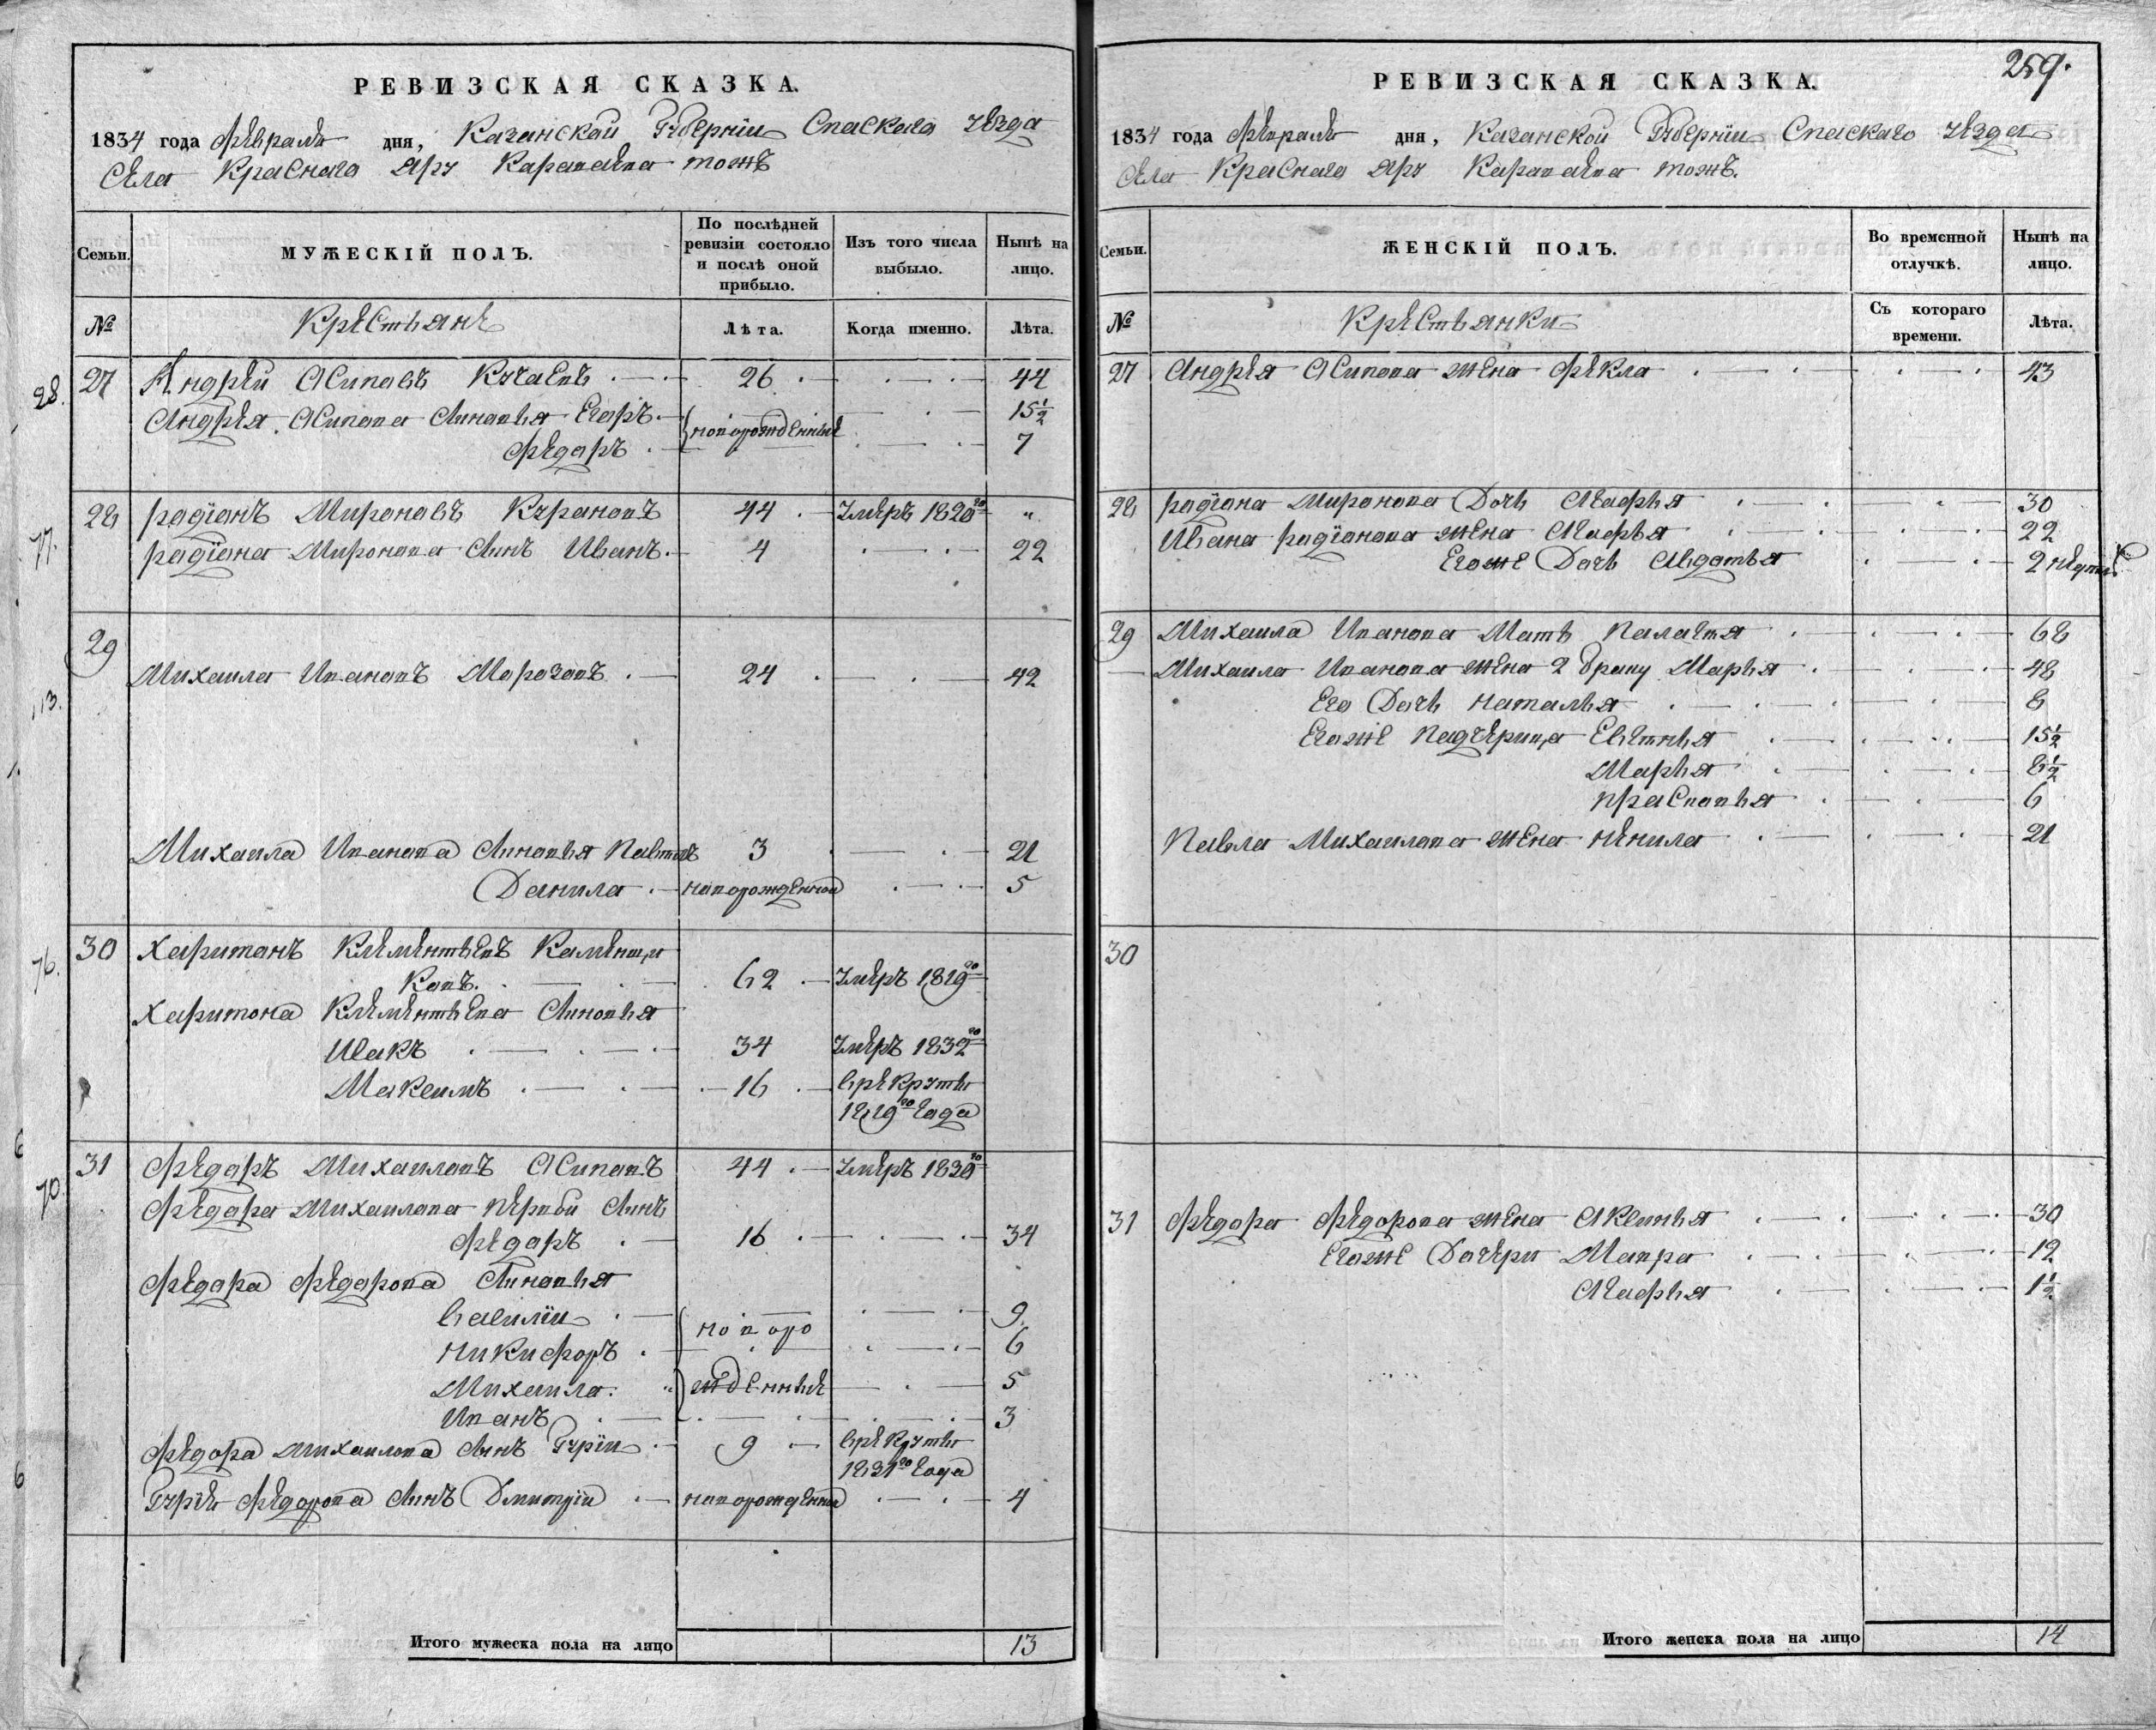 РЕВИЗСКАЯ СКАЗКА.
1834 года Февраля дня, Казанской Губернiи Спаскаго уѣзда
Села Краснаго Яру тожъ
Семьи.
МУЖЕСКІЙ ПОЛЪ.
По послѣдней ревизіи состояло и послѣ оной прибыло.
Изъ того числа выбыло.
Нынѣ на лицо.
№
Крестьяне
Лѣта.
Когда именно.
Лѣта.
28.
27 Андрей Осиповъ 26 44
Андрея Осипова Сыновья Егоръ 15½
новорожденные
Федоръ 7
77.
28 Радiонъ Мироновъ 44 Умеръ 1828го "
Радiона Миронова Сынъ Иванъ 4 22
13.
29
Михаила Ивановъ Морозовъ 24 42
Михаила Иванова Сыновья Павелъ 3 21
Данила новорожденной 5
76.
30 Харитонъ Клементьевъ Каменщи
ковъ. 62 Умеръ 1819го
Харитона Клементьева Сыновья
Исакъ 34 Умеръ 1832го
Максимъ 16 врекруты
1819го года
70.
31 Федоръ Михаиловъ Осиповъ 44 Умеръ 1830го
Федора Михаилова первой Сынъ
Федоръ 16 34
Федора Федорова Сыновья
Василiи 9
новоро
Никифоръ 6
Михаила жденные 5
Иванъ 3
Федора Михаилова Сынъ Гурiи 9 врекруты
1831го года
Гурiя Федорова Сынъ Дмитрiи новорожденны 4
Итого мужеска пола на лицо 13
259.
РЕВИЗСКАЯ СКАЗКА.
1834 года Февраля дня, Казанской Губернiи Спаскаго уѣзда
Села Краснаго Яру тожъ.
Семьи.
ЖЕНСКІЙ ПОЛЪ.
Во временной отлучкѣ.
Нынѣ на лицо.
№
Крестьянки
Съ котораго времени.
Лѣта.
27 Андрея Осипова жена Фекла 43
28 Радiона Миронова Дочь Агафья 30
Ивана Радiонова жена Агафья 22
Егоже Дочь Авдотья 2 недели
29 Михаила Иванова Мать Палагея 68
Михаила Иванова жена 2 браку Марья 48
Его Дочь Наталья 8
Егоже Падчерица Евгенья 15½
Марья 8½
Прасковья 6
Павла Михаилова жена Ненила 21
30
31 Федора Федорова жена Аксинья 30
Егоже Дочери Мавра 12
Агафья 1½
Итого женска пола на лицо 14